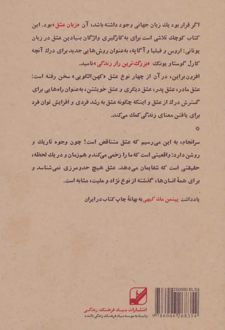 اگر قرار بود یک زبان جهانی وجود داشته باشد، آن «زبان عشق» بود. این
کتاب کوچک تلاشی است برای به‌کارگیری واژگان بنیادین عشق در زبان
یونانی: اروس و فیلیا و آگاپه، به‌عنوان روش‌هایی جدید برای درک آنچه
کارل گوستاو یونگ «بزرگ‌ترین راز زندگی» نامید.
افزون‌براین، در آن از چهار نوع عشق «کهن‌الگویی» سخن رفته است:
عشق مادر، عشق پدر، عشق دیگری و عشق خویشتن، به‌عنوان راه‌هایی برای
گسترش درک از عشق و اینکه چگونه عشق به رشد فردی و افزایش توان فرد
برای یافتن معنای زندگی کمک می‌کند.
*
سرانجام به این می‌رسیم که عشق متناقض است! چون وجوه تاریک و
روشن دارد؛ واقعیتی است که ما را زخمی می‌کند و هم‌زمان و در یک لحظه،
حقیقتی است که شفایمان می‌دهد. عشق هیچ حدومرزی نمی‌شناسد و
برای همهٔ انسان‌ها، گذشته از نوع نژاد و ملیت، مشابه است.
یادداشت به بهانهٔ چاپ کتاب در ایران
انتشارات بنیاد فرهنگ زندگی